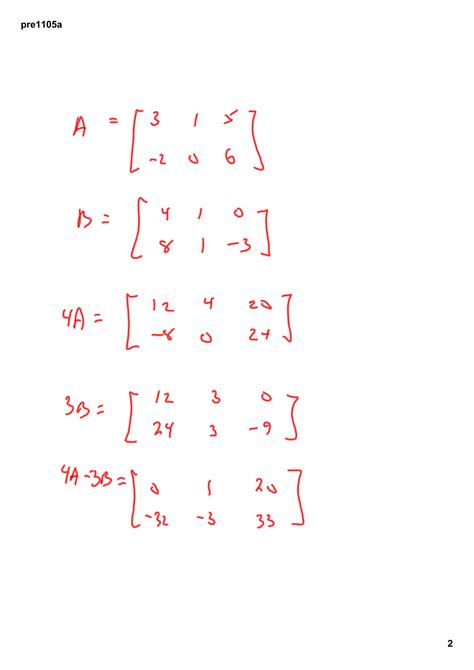 pre1105a
A = [ 3 1 5
-2 0 6 ]
B = [ 4 1 0
8 1 -3 ]
4A = [ 12 4 20
-8 0 24 ]
3B = [ 12 3 0
24 3 -9 ]
4A-3B = [ 0 1 20
-32 -3 33 ]
2